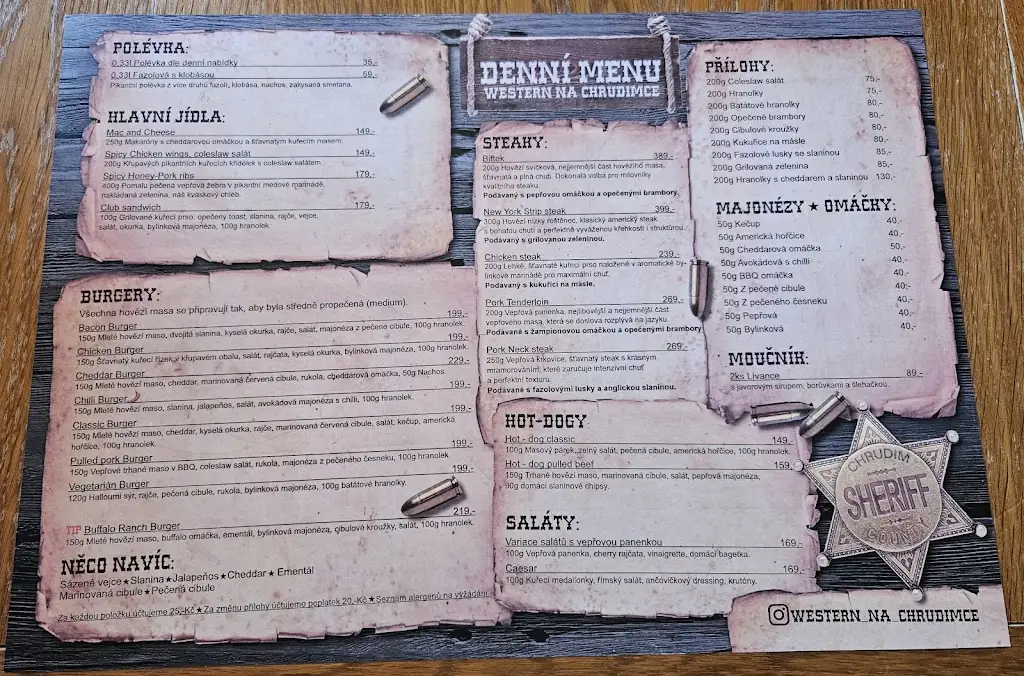 POLÉVKA:
0,33l Polévka dle denní nabídky 35,-
0,33l Fazolová s klobásou 59,-
Pikantní polévka z více druhů fazolí, klobása, nachos, zakysaná smetana.
HLAVNÍ JÍDLA:
Mac and Cheese 149,-
250g Makaróny s cheddarovou omáčkou a šťavnatým kuřecím masem.
Spicy Chicken wings, coleslaw salát 149,-
200g Křupavých pikantních kuřecích křidélek s coleslaw salátem.
Spicy Honey-Pork ribs 179,-
400g Pomalu pečená vepřová žebra v pikantní medové marinádě,
nakládaná zelenina, náš kváskový chléb.
Club sandwich 179,-
100g Grilované kuřecí prso, opečený toast, slanina, rajče, vejce,
salát, okurka, bylinková majonéza, 100g hranolek.
BURGERY:
Všechna hovězí masa se připravují tak, aby byla středně propečená (medium).
Bacon Burger 199,-
150g Mleté hovězí maso, dvojitá slanina, kyselá okurka, rajče, salát, majonéza z pečené cibule, 100g hranolek.
Chicken Burger 199,-
150g Šťavnatý kuřecí řízek v křupavém obalu, salát, rajčata, kyselá okurka, bylinková majonéza, 100g hranolek.
Cheddar Burger 229,-
150g Mleté hovězí maso, cheddar, marinovaná červená cibule, rukola, cheddarová omáčka, 50g Nachos.
Chilli Burger 199,-
150g Mleté hovězí maso, slanina, jalapeños, salát, avokádová majonéza s chilli, 100g hranolek.
Classic Burger 199,-
150g Mleté hovězí maso, cheddar, kyselá okurka, rajče, marinovaná červená cibule, salát, kečup, americká
hořčice, 100g hranolek.
Pulled pork Burger 199,-
150g Vepřové trhané maso v BBQ, coleslaw salát, rukola, majonéza z pečeného česneku, 100g hranolek.
Vegetarián Burger 199,-
120g Halloumi sýr, rajče, pečená cibule, rukola, bylinková majonéza, 100g batátové hranolky.
TIP Buffalo Ranch Burger 219,-
150g Mleté hovězí maso, buffalo omáčka, ementál, bylinková majonéza, cibulové kroužky, salát, 100g hranolek.
NĚCO NAVÍC:
Sázené vejce★Slanina★Jalapeños★Cheddar★Ementál
Marinovaná cibule★Pečená cibule
Za každou položku účtujeme 25,-Kč★Za změnu přílohy účtujeme poplatek 20,-Kč★Seznam alergenů na vyžádání
DENNÍ MENU
WESTERN NA CHRUDIMCE
STEAKY:
Biftek 389,-
200g Hovězí svíčková, nejjemnější část hovězího masa,
šťavnatá a plná chuti. Dokonalá volba pro milovníky
kvalitního steaku.
Podávaný s pepřovou omáčkou a opečenými brambory.
New York Strip steak 399,-
300g Hovězí nízký roštěnec, klasický americký steak
s bohatou chutí a perfektně vyváženou křehkostí i strukturou.
Podávaný s grilovanou zeleninou.
Chicken steak 239,-
200g Lehké, šťavnaté kuřecí prso naložené v aromatické by-
linkové marinádě pro maximální chuť.
Podávaný s kukuřicí na másle.
Pork Tenderloin 269,-
200g Vepřová panenka, nejlibovější a nejjemnější část
vepřového masa, která se doslova rozplývá na jazyku.
Podávané s žampionovou omáčkou a opečenými brambory
Pork Neck steak 269,-
250g Vepřová krkovice, šťavnatý steak s krásným
mramorováním, které zaručuje intenzivní chuť
a perfektní texturu.
Podávaný s fazolovými lusky a anglickou slaninou.
HOT-DOGY:
Hot - dog classic 149,-
100g Masový párek, zelný salát, pečená cibule, americká hořčice, 100g hranolek.
Hot - dog pulled beef 159,-
150g Trhané hovězí maso, marinovaná cibule, salát, pepřová majonéza,
90g domácí slaninové chipsy.
SALÁTY:
Variace salátů s vepřovou panenkou 169,-
100g Vepřová panenka, cherry rajčata, vinaigrette, domácí bagetka.
Caesar 169,-
100g Kuřecí medailonky, římský salát, ančovičkový dressing, krutóny.
PŘÍLOHY:
200g Coleslaw salát 75,-
200g Hranolky 75,-
200g Batátové hranolky 80,-
200g Opečené brambory 80,-
200g Cibulové kroužky 80,-
200g Kukuřice na másle 80,-
200g Fazolové lusky se slaninou 85,-
200g Grilovaná zelenina 85,-
200g Hranolky s cheddarem a slaninou 130,-
MAJONÉZY ★ OMÁČKY:
50g Kečup 40,-
50g Americká hořčice 40,-
50g Cheddarová omáčka 50,-
50g Avokádová s chilli 40,-
50g BBQ omáčka 40,-
50g Z pečené cibule 40,-
50g Z pečeného česneku 40,-
50g Pepřová 40,-
50g Bylinková 40,-
MOUČNÍK:
2ks Lívance 89,-
s javorovým sirupem, borůvkami a šlehačkou.
CHRUDIM
SHERIFF
COUNTY
WESTERN_NA_CHRUDIMCE